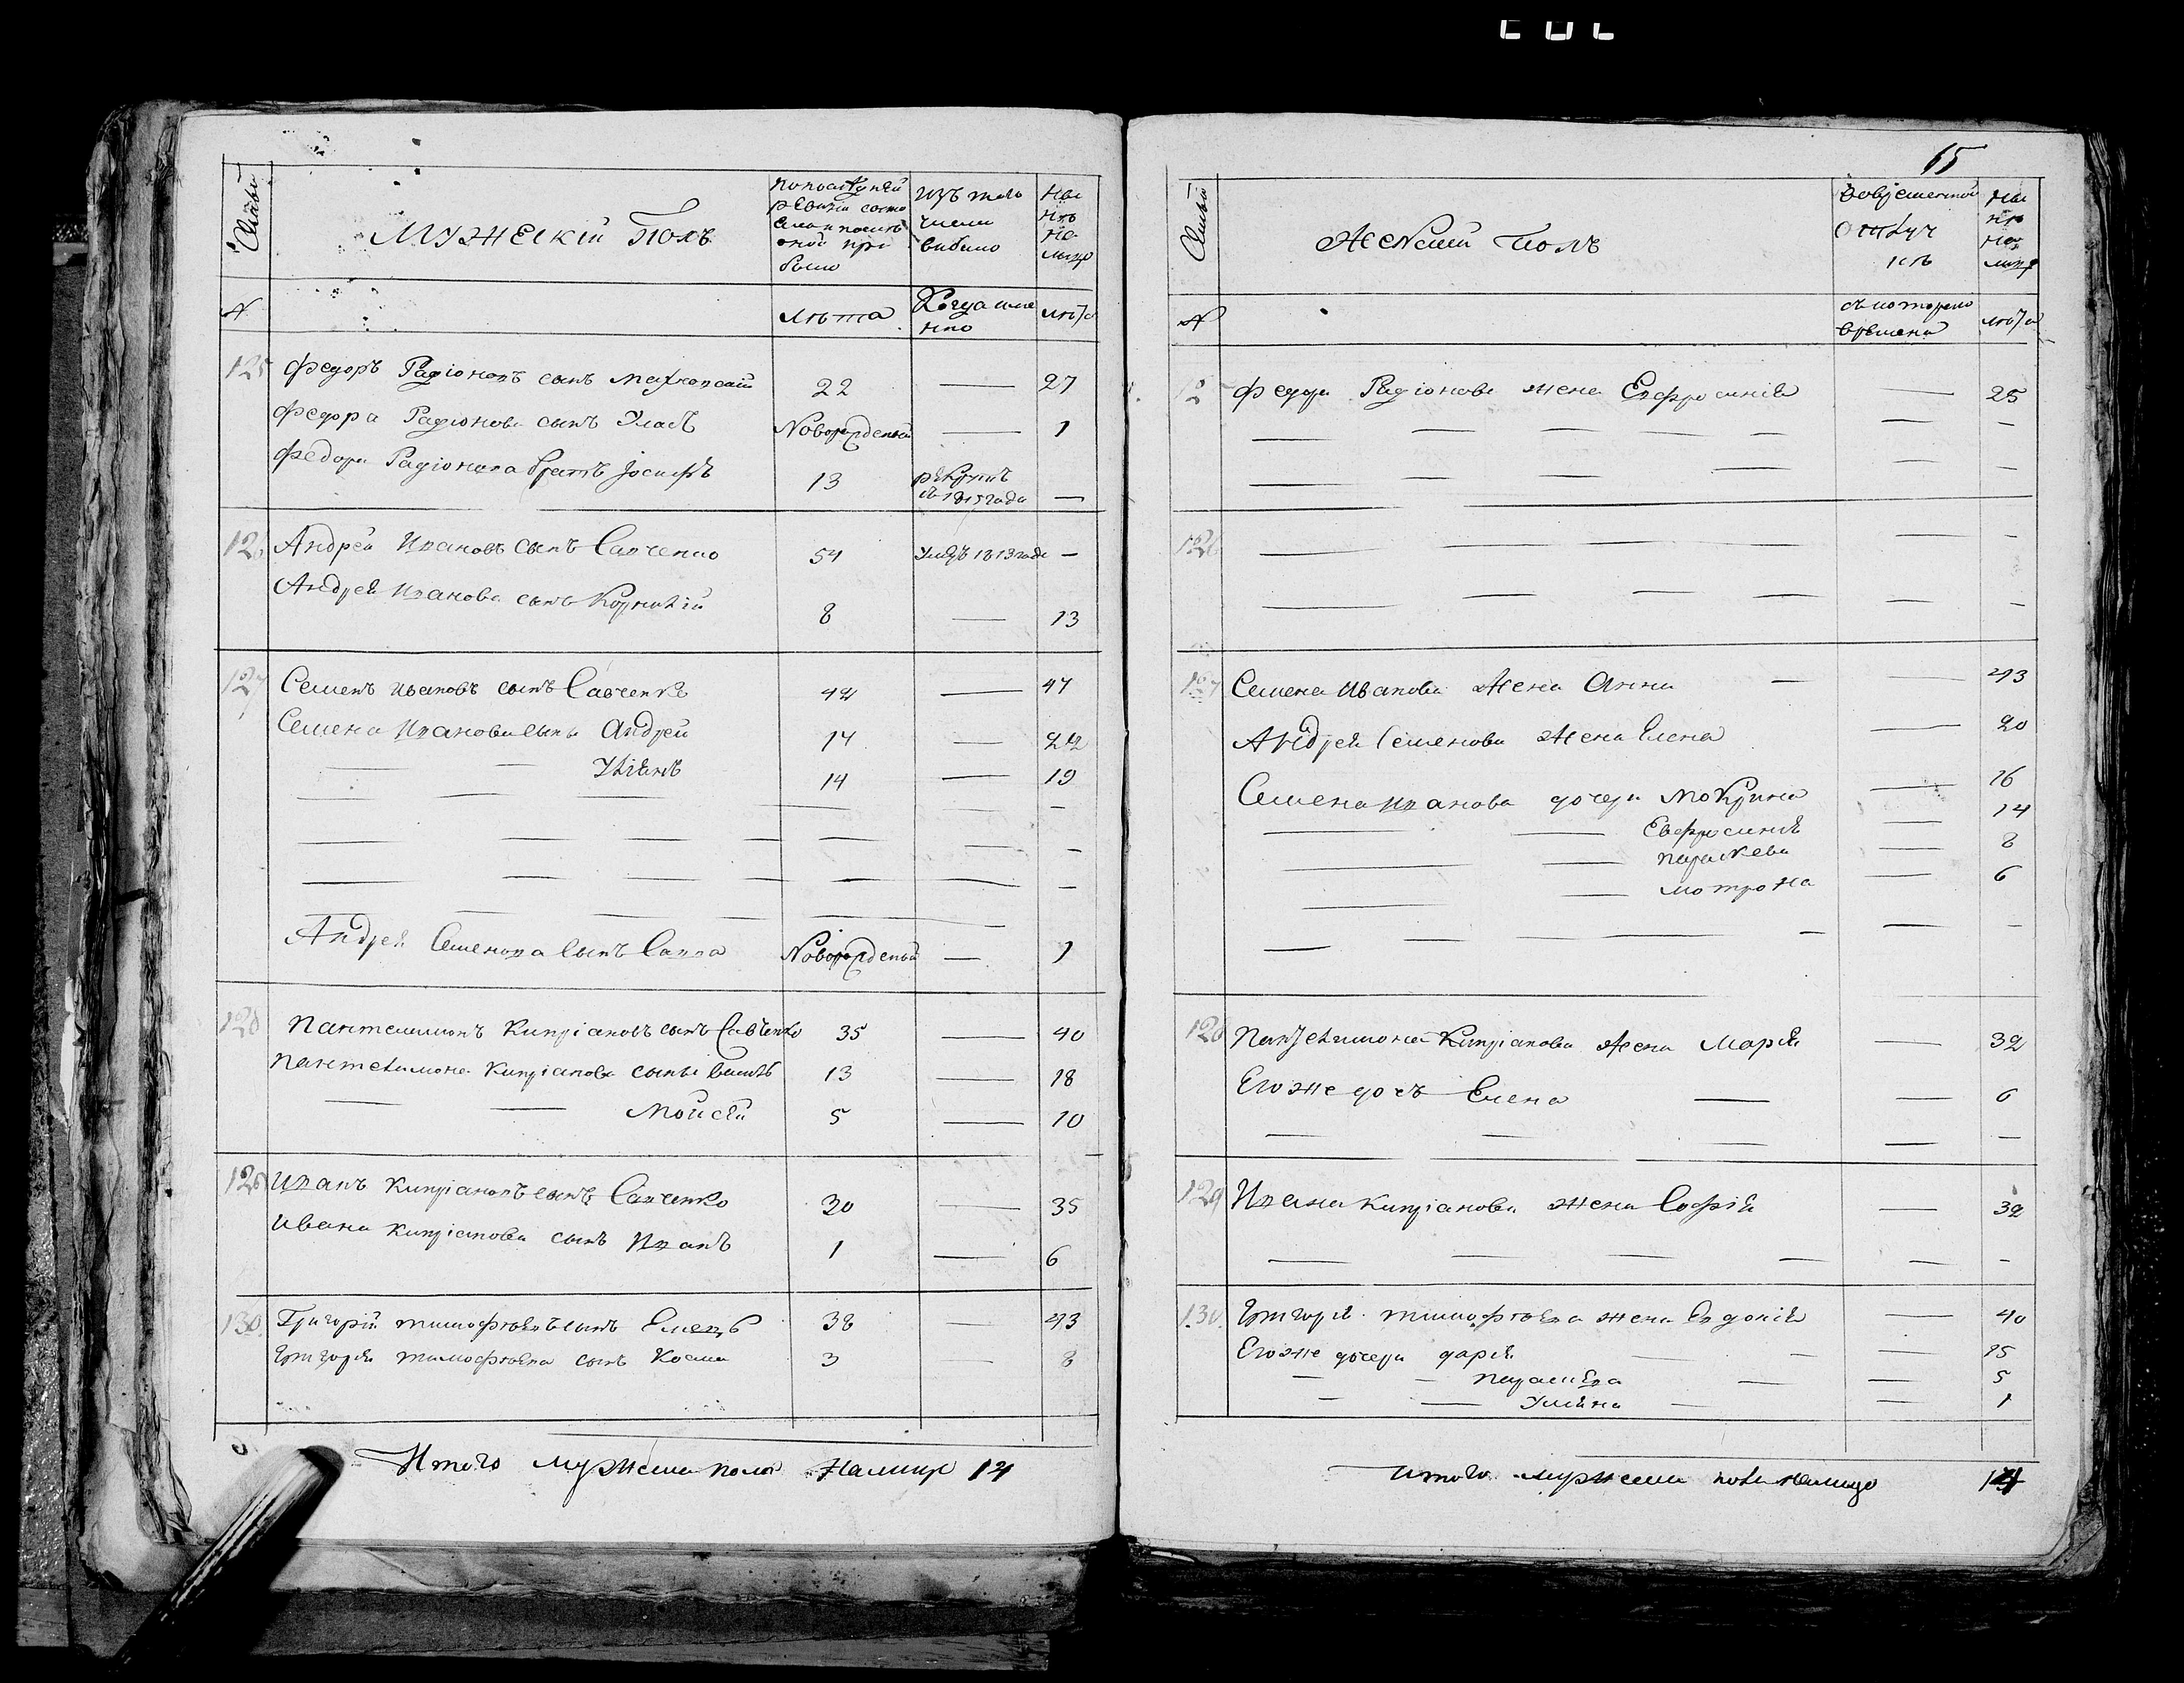 65
Семьи
Мужескій Полъ
По последней ревизіи состояло и после оной прибыло
Изъ того числа выбыло
Ныне на лицо
№
Лѣта
Когда именно
лѣта
125 Федоръ Радіоновъ сынъ 22 — 27
Федора Радіонова сынъ Уласъ Новорожденый — 1
Федора Радіонова братъ Іосифъ 13 рекрутъ въ 1815 года —
126 Андрей Ивановъ сынъ Савченко 54 Умеръ 1813 года —
Андрея Иванова сынъ Корнилій 8 — 13
127 Семенъ Ивановъ сынъ Савченко 42 — 47
Семена Иванова сыны Андрей 17 — 22
— — Уліянъ 14 — 19
Андрея Семенова сынъ Савва Новорожденый — 1
128 Пантелимонъ Кипріановъ сынъ Савченко 35 — 40
Пантелимона Кипріанова сыны 13 — 18
— — Мойсей 5 — 10
129 Иванъ Кипріановъ сынъ Савченко 30 — 35
Ивана Кипріанова сынъ Иванъ 1 — 6
130. Григорій Тимофѣевъ сынъ Емецъ 38 — 43
Григорія Тимофѣева сынъ Косма 3 — 8
Итого мужеска пола налицо 14
Семьи
Женскій Полъ
Во временной отлучке
Ныне на лицо
№
съ котораго времени
лѣта
12 Федора Радіонова жена Евфросинія — 25
126
127 Семена Иванова жена Анна — 43
Андрея Семенова жена Елена — 20
Семена Иванова дочери Мокрина — 16
— — Евфросинія — 14
— — Параскева — 8
— — Мотрона — 6
128 Пантелимона Кипріанова жена Марія — 32
Его же дочь Елена — — 6
129 Ивана Кипріанова жена Софія — 32
130. Григорія Тимофѣева жена Евдокія — 40
Его же дочери Дарія — — — 15
— — Параскева — — 5
— — Уліяна — — 1
Итого налицо 14